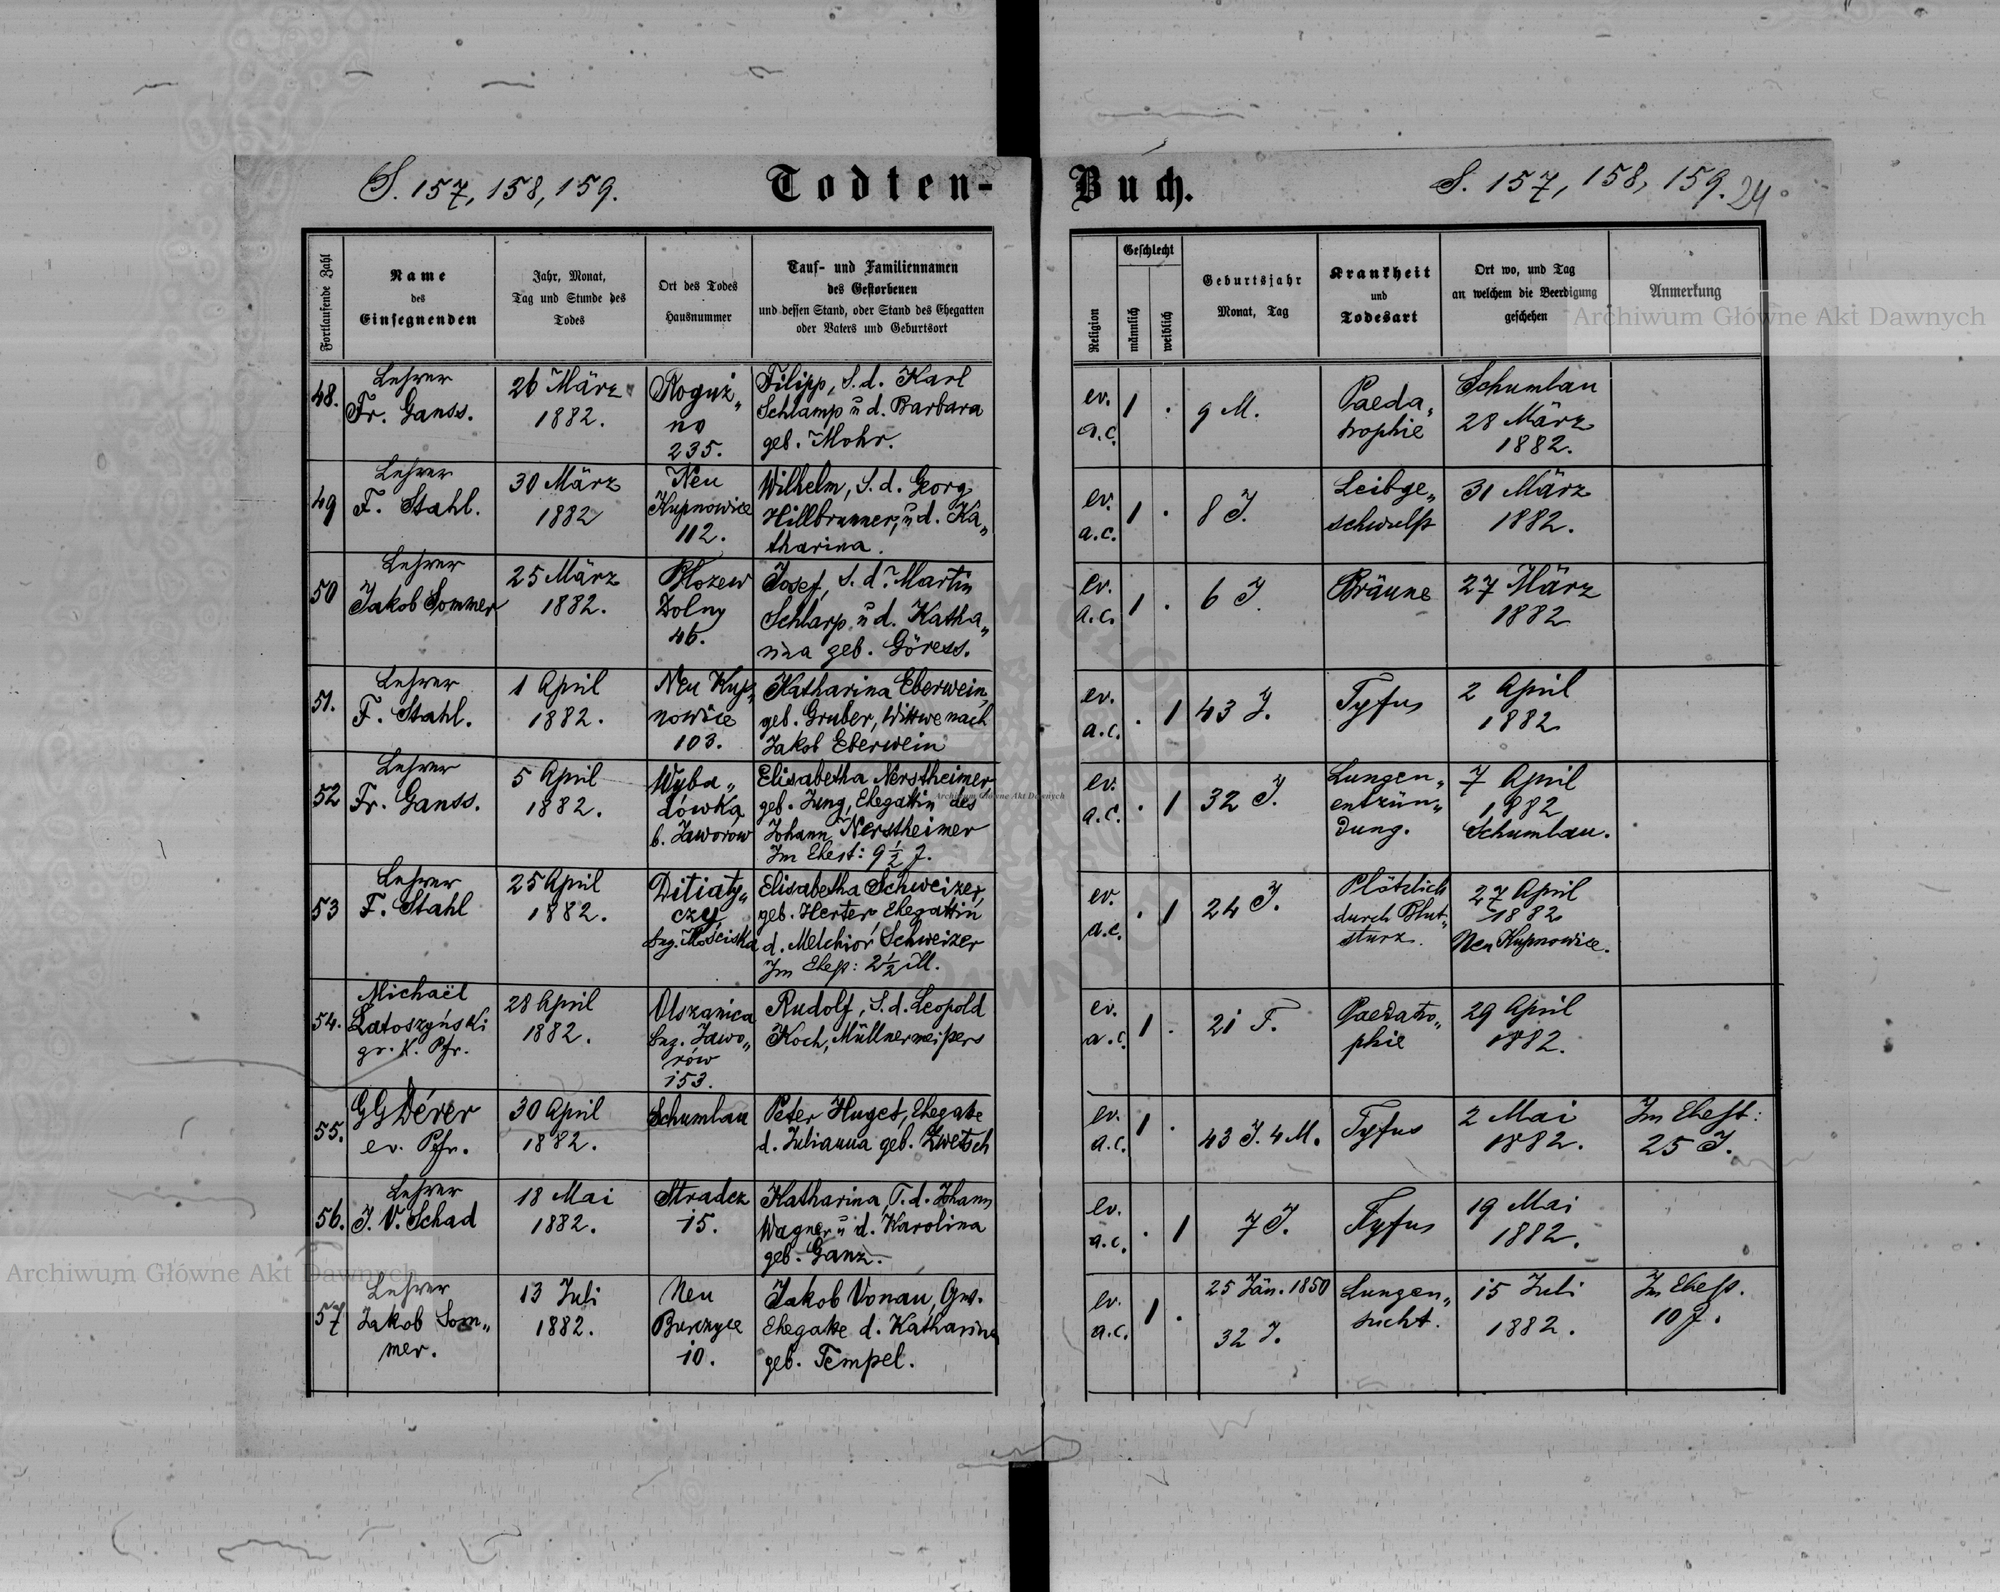 S. 157, 158, 159.
Todten-
Buch.
S. 157, 158, 159. 24
Fortlaufende Zahl
Name
des
Einsegnenden
Jahr, Monat,
Tag und Stunde des
Todes
Ort des Todes
Hausnummer
Tauf- und Familiennamen
des Gestorbenen
und dessen Stand, oder Stand des Ehegatten
oder Vaters und Geburtsort
Religion
Geschlecht
männlich
weiblich
Geburtsjahr
Monat, Tag
Krankheit
und
Todesart
Ort wo, und Tag
an welchem die Beerdigung
geschehen
Anmerkung
Archiwum Główne Akt Dawnych
48.
Lehrer
Fr. Ganss.
26 März
1882.
Roguź„
no
235.
Filipp, S. d. Karl
Schlamp u d. Barbara
geb. Mohr.
ev.
a.c.
1 .
9 M.
Paeda„
trophie
Schumlau
28 März
1882.
49
Lehrer
F. Stahl.
30 März
1882
Neu
Kupnowice
112.
Wilhelm, S. d. Georg
Hillbrunner, u d. Ka„
tharina.
ev.
a.c.
1 .
8 J.
Leibge„
schwulst
31 März
1882.
50
Lehrer
Jakob Sommer
25 März
1882.
Błozew
Dolny
46.
Josef, S. d. Martin
Schlarp u d. Katha„
rina geb. Göress.
ev.
a.c.
1 .
6 J.
Bräune
27 März
1882
51.
Lehrer
F. Stahl.
1 April
1882.
Neu Kup„
nowice
103.
Katharina Eberwein,
geb. Gruber, Wittwe nach
Jakob Eberwein
ev.
a.c.
. 1
43 J.
Tyfus
2 April
1882
52
Lehrer
Fr. Ganss.
5 April
1882.
Wyba„
dówka
b. Jaworów
Elisabetha Nerstheimer,
geb. Jung, Ehegattin des
Johann Nerstheimer
Im Ehest: 9 1/2 J.
ev.
a.c.
. 1
32 J.
Lungen„
entzün„
dung.
7 April
1882
Schumlau.
53
Lehrer
F. Stahl
25 April
1882.
Ditiaty„
czy
bzg. Mościska
Elisabetha Schweizer,
geb. Herter, Ehegattin
d. Melchior Schweizer
Im Ehest: 2 1/2 M.
ev.
a.c.
. 1
24 J.
Plötzlich
durch Blut„
sturz.
27 April
1882
Neu Kupnowice.
54.
Michaël
Łatoszyński
gr. k. Pfr.
28 April
1882.
Olszanica
bzg. Jawo„
rów
153.
Rudolf, S. d. Leopold
Koch, Müllnermeisters
ev.
a.c.
1 .
21 T.
Paedatro„
phie
29 April
1882.
55.
GGDérer
ev. Pfr.
30 April
1882.
Schumlau
Peter Huget, Ehegatte
d. Julianna geb. Zwetsch
ev.
a.c.
1 .
43 J. 4 M.
Tyfus
2 Mai
1882.
Im Ehest:
25 J.
56.
Lehrer
J. V. Schad
18 Mai
1882.
Stradcz
15.
Katharina, T. d. Johann
Wagner u d. Karolina
geb. Ganz.
ev.
a.c.
. 1
7 J.
Tyfus
19 Mai
1882.
57
Lehrer
Jakob Som„
mer.
13 Juli
1882.
Neu
Burczyce
10.
Jakob Vonau, Gw.
Ehegatte d. Katharina
geb. Tempel.
ev.
a.c.
1 .
25 Jän. 1850
32 J.
Lungen„
sucht.
15 Juli
1882.
Im Ehest.
10 J.
Archiwum Główne Akt Dawnych
Archiwum Główne Akt Dawnych